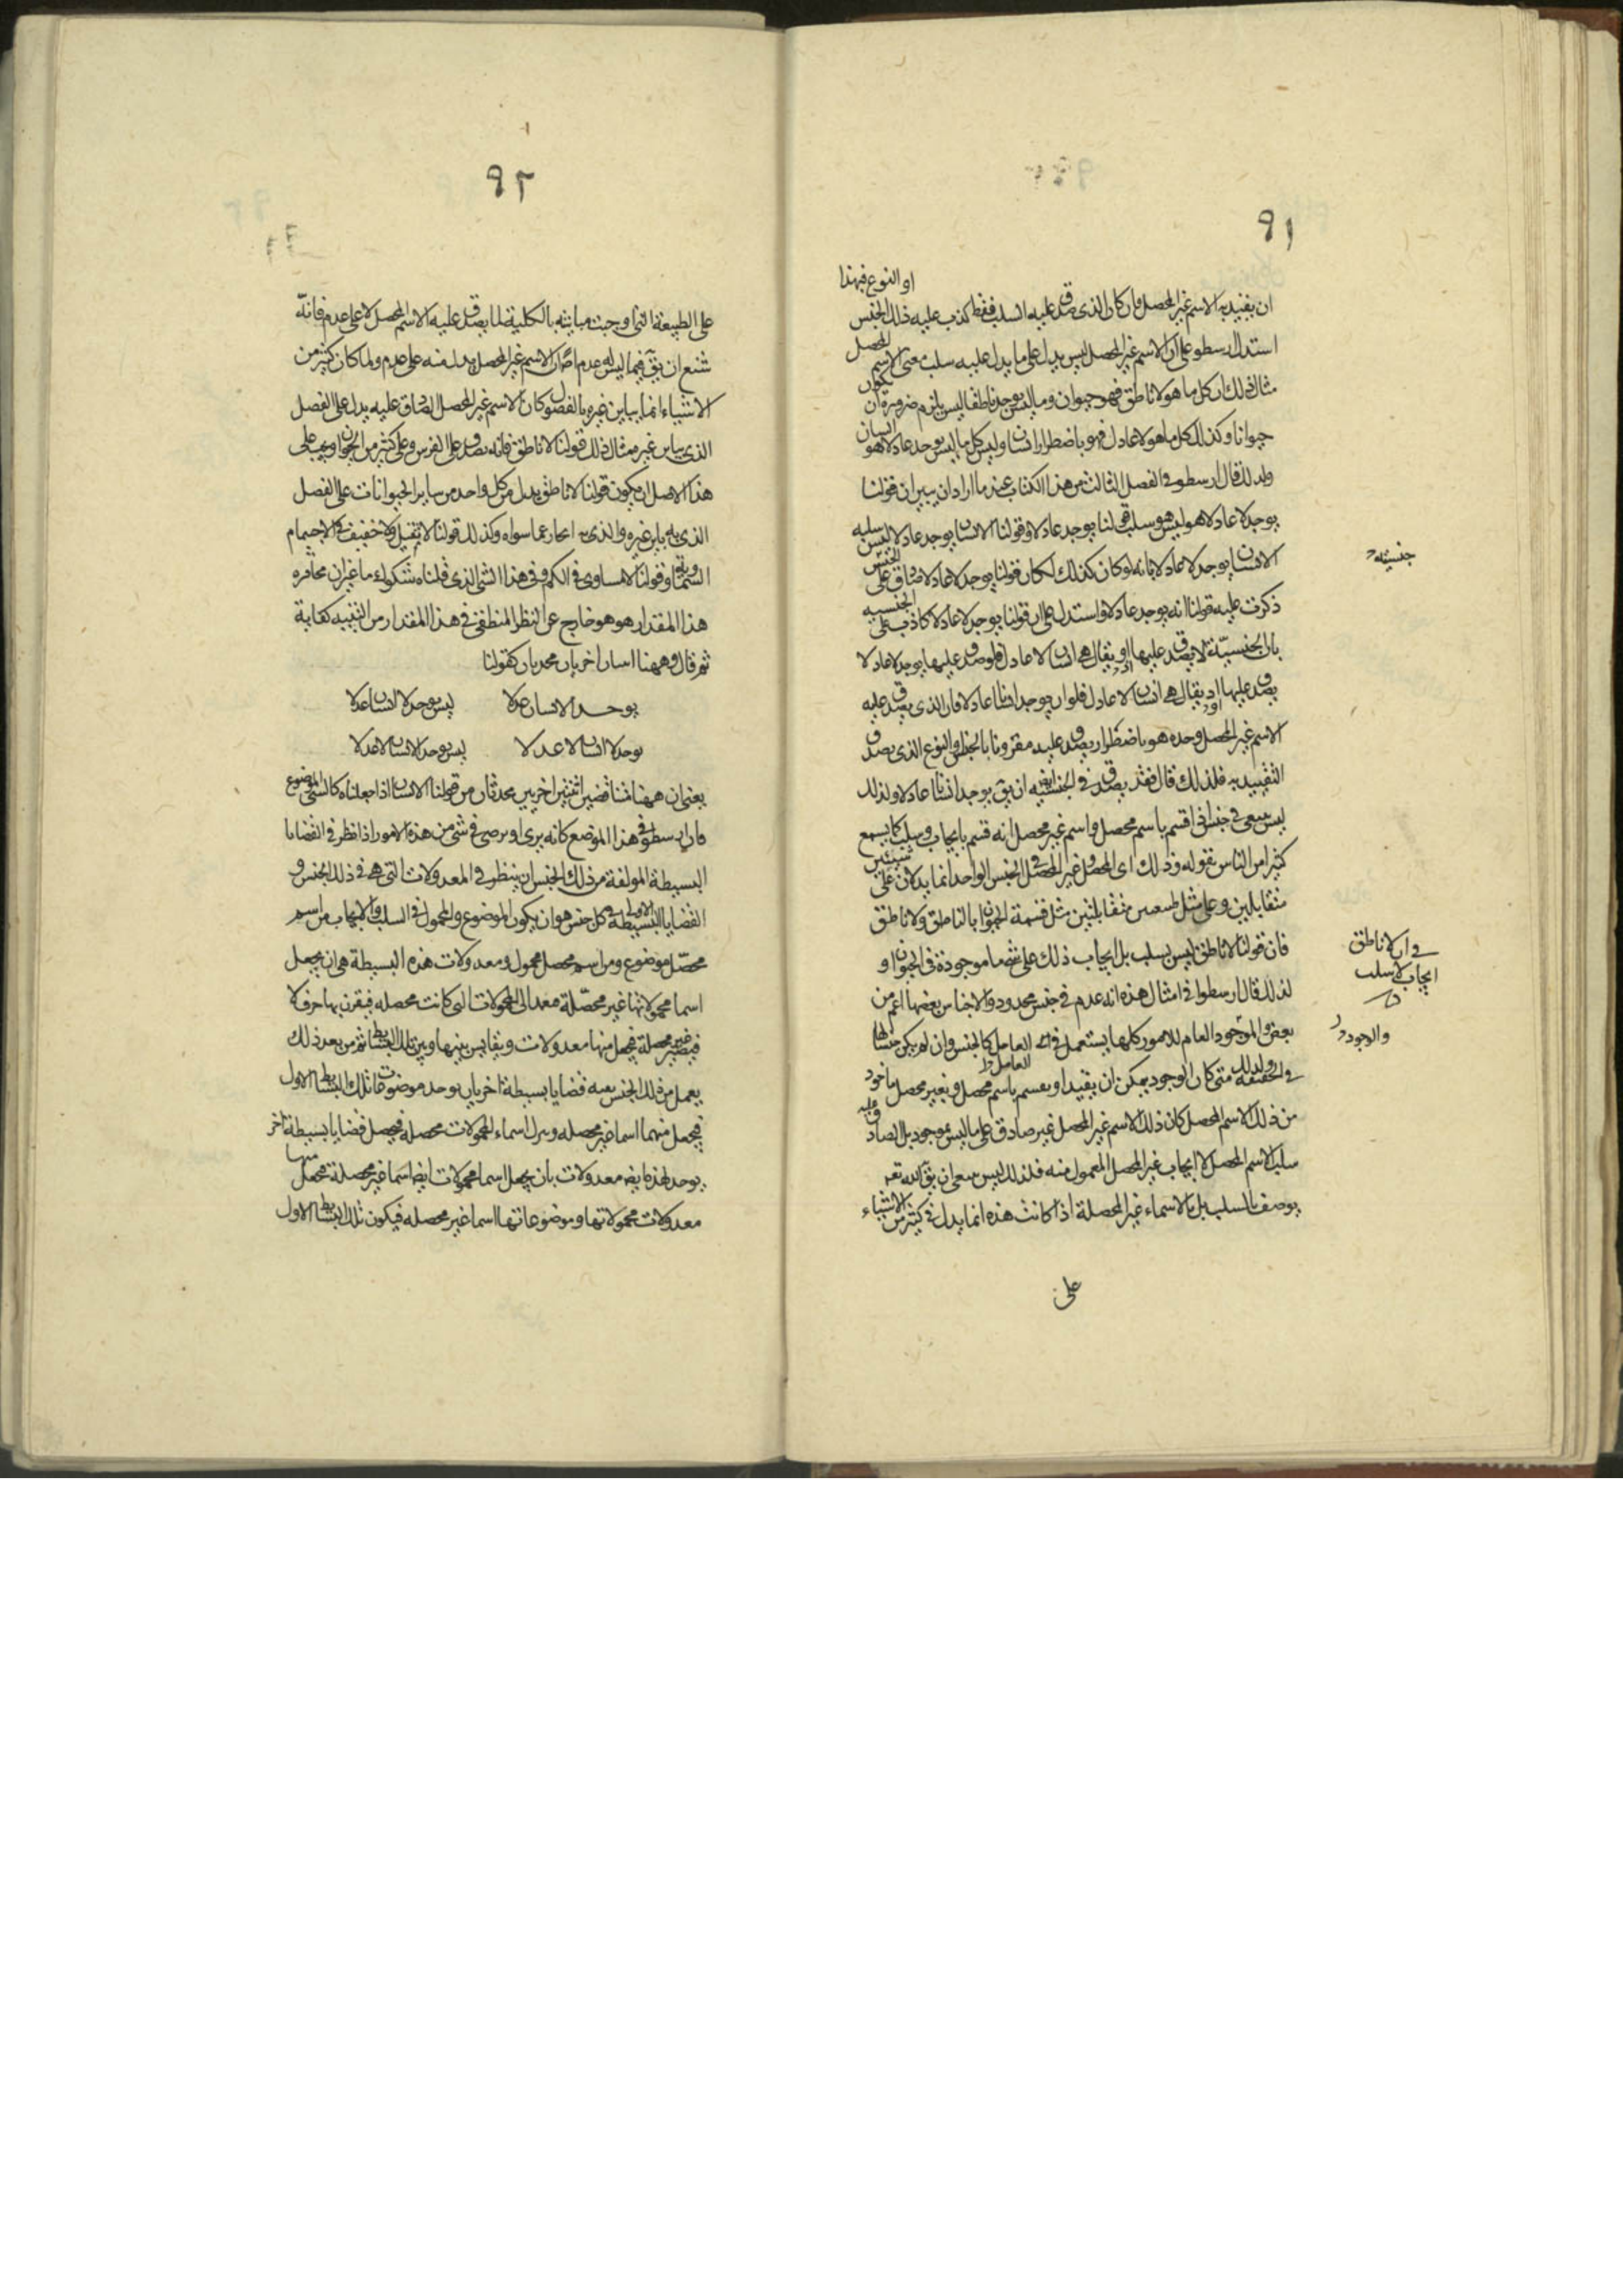 ٩١
او النوع فبهذا
ان يقيد به الاسم غير المحصل وان كان الذى صدق عليه السلب فقط كذب عليه ذلك الجنس
استدل ارسطو على ان الاسم غير المحصل ليس يدل على ما يدل عليه سلب معنى الاسم المحصل
مثال ذلك ان كل ما هو لا ناطق فهو حيوان وما ليس يوجد ناطقا ليس يلزم ضرورة ان يكون
حيوانا وكذلك كل ما هو لا عادل فهو باضطرار انسان وليس كل ما ليس يوجد عادلا هو انسان
ولذلك قال ارسطو فى الفصل الثالث من هذا الكتاب عند ما اراد ان يبين ان قولنا
يوجد لا عادلا هو ليس هو سلب قولنا يوجد عادلا وقولنا الانسان يوجد عادلا ليس سلبه
الانسان يوجد لا عادلا فانه لو كان كذلك لكان قولنا يوجد لا عادلا صادق على الخشبة
جنسيته
ذكرت عليه قولنا انه يوجد عادلا واستدل على ان قولنا يوجد لا عادلا كاذب على الجنسيه
بان الجنسيّة لا يصدق عليها ان يقال هى انسان لا عادل فلو صدق عليها يوجد لا عادلا
يصدق عليها ان يقال هى انسان لا عادل فلو ان يوجد انسانا عادلا فان الذى يصدق عليه
الاسم غير المحصل وحده هو باضطرار يصدق عليه مقرونا بالجنس او النوع الذى يصدق
التقييد به فلذلك قال فقد يصدق فى الجنسيه ان يق يوجد انسانا عادلا ولذلك
ليس ينبغى فى جنس اذا قسم باسم محصل واسم غير محصل انه قسم بايجاب وسلب كما يسمع
كثيرا من الناس يقوله وذلك اى المحصل وغير المحصل فى الجنس الواحد انما يدلان على شيئين
متقابلين وعلى مثل طبيعتين متقابلتين مثل قسمة الحيوان بالناطق ولا ناطق
فان قولنا لا ناطق ليس بسلب بل ايجاب ذلك على شئ ما موجودة فى الحيوان او
فى ان لا ناطق
ايجاب لا سلب
لذلك قال ارسطوا فى امثال هذه انه عدم فى جنس محدود والاجناس بعضها اعم من
بعض والموجود العام للامور كلها يستعمل فى العامل كالجنس وان لم يكن جنسا لها
والوجود
فى الحقيقه ولذلك متى كان الوجود يمكن ان يقيد او يقسم باسم محصل وبغير محصل ماخوذ
من ذلك الاسم المحصل كان ذلك الاسم غير المحصل غير صادق على ما ليس بموجود بل الصادق عليه
سلب الاسم المحصل لا ايجاب غير المحصل المعمول منه فلذلك ليس ينبغى ان يق الله تعه
يوصف بالسلب بل بالاسماء غير المحصلة اذا كانت هذه انما يدل فى كثير من الاشياء
على
٩٢
على الطبيعة التى وجبت مباينته بالكلية لما يصدق عليه الاسم المحصل لا على عدم فانّه
شنع ان يق فيما ليس له عدم اصلا ان الاسم غير المحصل يدل منه على عدم ولما كان كثير من
الاشياء انما يباين غيره بالفصول كان الاسم غير المحصل الصادق عليه يدل على الفصل
الذى يباين غيره مثال ذلك قولنا لا ناطق فانه يصدق على الفرس وعلى كثير من الحيوان ويجب على
هذا الاصل ان يكون قولنا لا ناطق يدل من كل واحد من ساير الحيوانات على الفصل
الذى به باين غيره والذى به انحاز عما سواه وكذلك قولنا لا ثقيل ولا خفيف فى الاجسام
السماوية وقولنا لا مساوى فى الكم وفى هذا الشئ الذى قلناه شكوك ما غير ان
هذا المقدار هو هو خارج عن النظر المنطقى فى هذا المقدار من التنبيه كفاية
ثم قال وههنا اخريان محدثان كقولنا
يوجد لا انسان عدلا ليس يوجد لا انسان عدلا
يوجد لا انسان لا عدلا ليس يوجد لا انسان لا عدلا
يعنى ان ههنا متناقضين اثنتين اخريين محدثتان من قولنا لا انسان اذا جعلناه كالشئ الموضوع
فان ارسطو فى هذا الموضع كانه يرى او يرضى فى شئ من هذه الامور اذا نظر فى القضايا
البسيطة المولفة من ذلك الجنس ان ينظر فى المعدولات التى هى فى ذلك الجنس و
القضايا البسيطة الاولى فى كل جنس هو ان يكون الموضوع والمحمول فى السلب والايجاب من اسم
محصّل موضوع ومن اسم محصل محمول ومعدولات هذه البسيطة هى ان يجعل
اسما محمولاتها غير محصّلة معدا الى المحمولات التى كانت محصله فيقرن بها حرف لا
فيصير غير محصلة فيجعل منها معدولات ويقايس بينها وبين تلك البسائط ثم من بعد ذلك
يعمل من ذلك الجنس بعينه قضايا بسيطة اخر بان يوجد موضوعات تلك البسائط الاول
فيجعل منهما اسما غير محصله ويترك اسماء المحمولات محصله فيحصل قضايا بسيطة اخر
يوجد لهذه ايضا معدولات بان يجعل اسما محمولات ايضا اسما غير محصلة فيحصل منها
معدولات محمولاتها وموضوعاتها اسما غير محصله فيكون تلك البسائط الاول